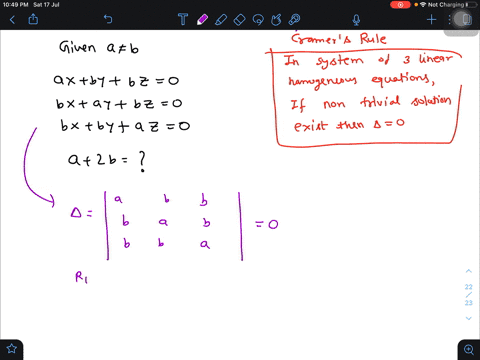 10:49 PM Sat 17 Jul
Given a≠b
ax+by+bz=0
bx+ay+bz=0
bx+by+az=0
a+2b=?
Cramer's Rule
In system of 3 linear
homogenous equations,
If non trivial solution
exist then Δ=0
Δ= | a b b |
| b a b | =0
| b b a |
R₁
22
/
23